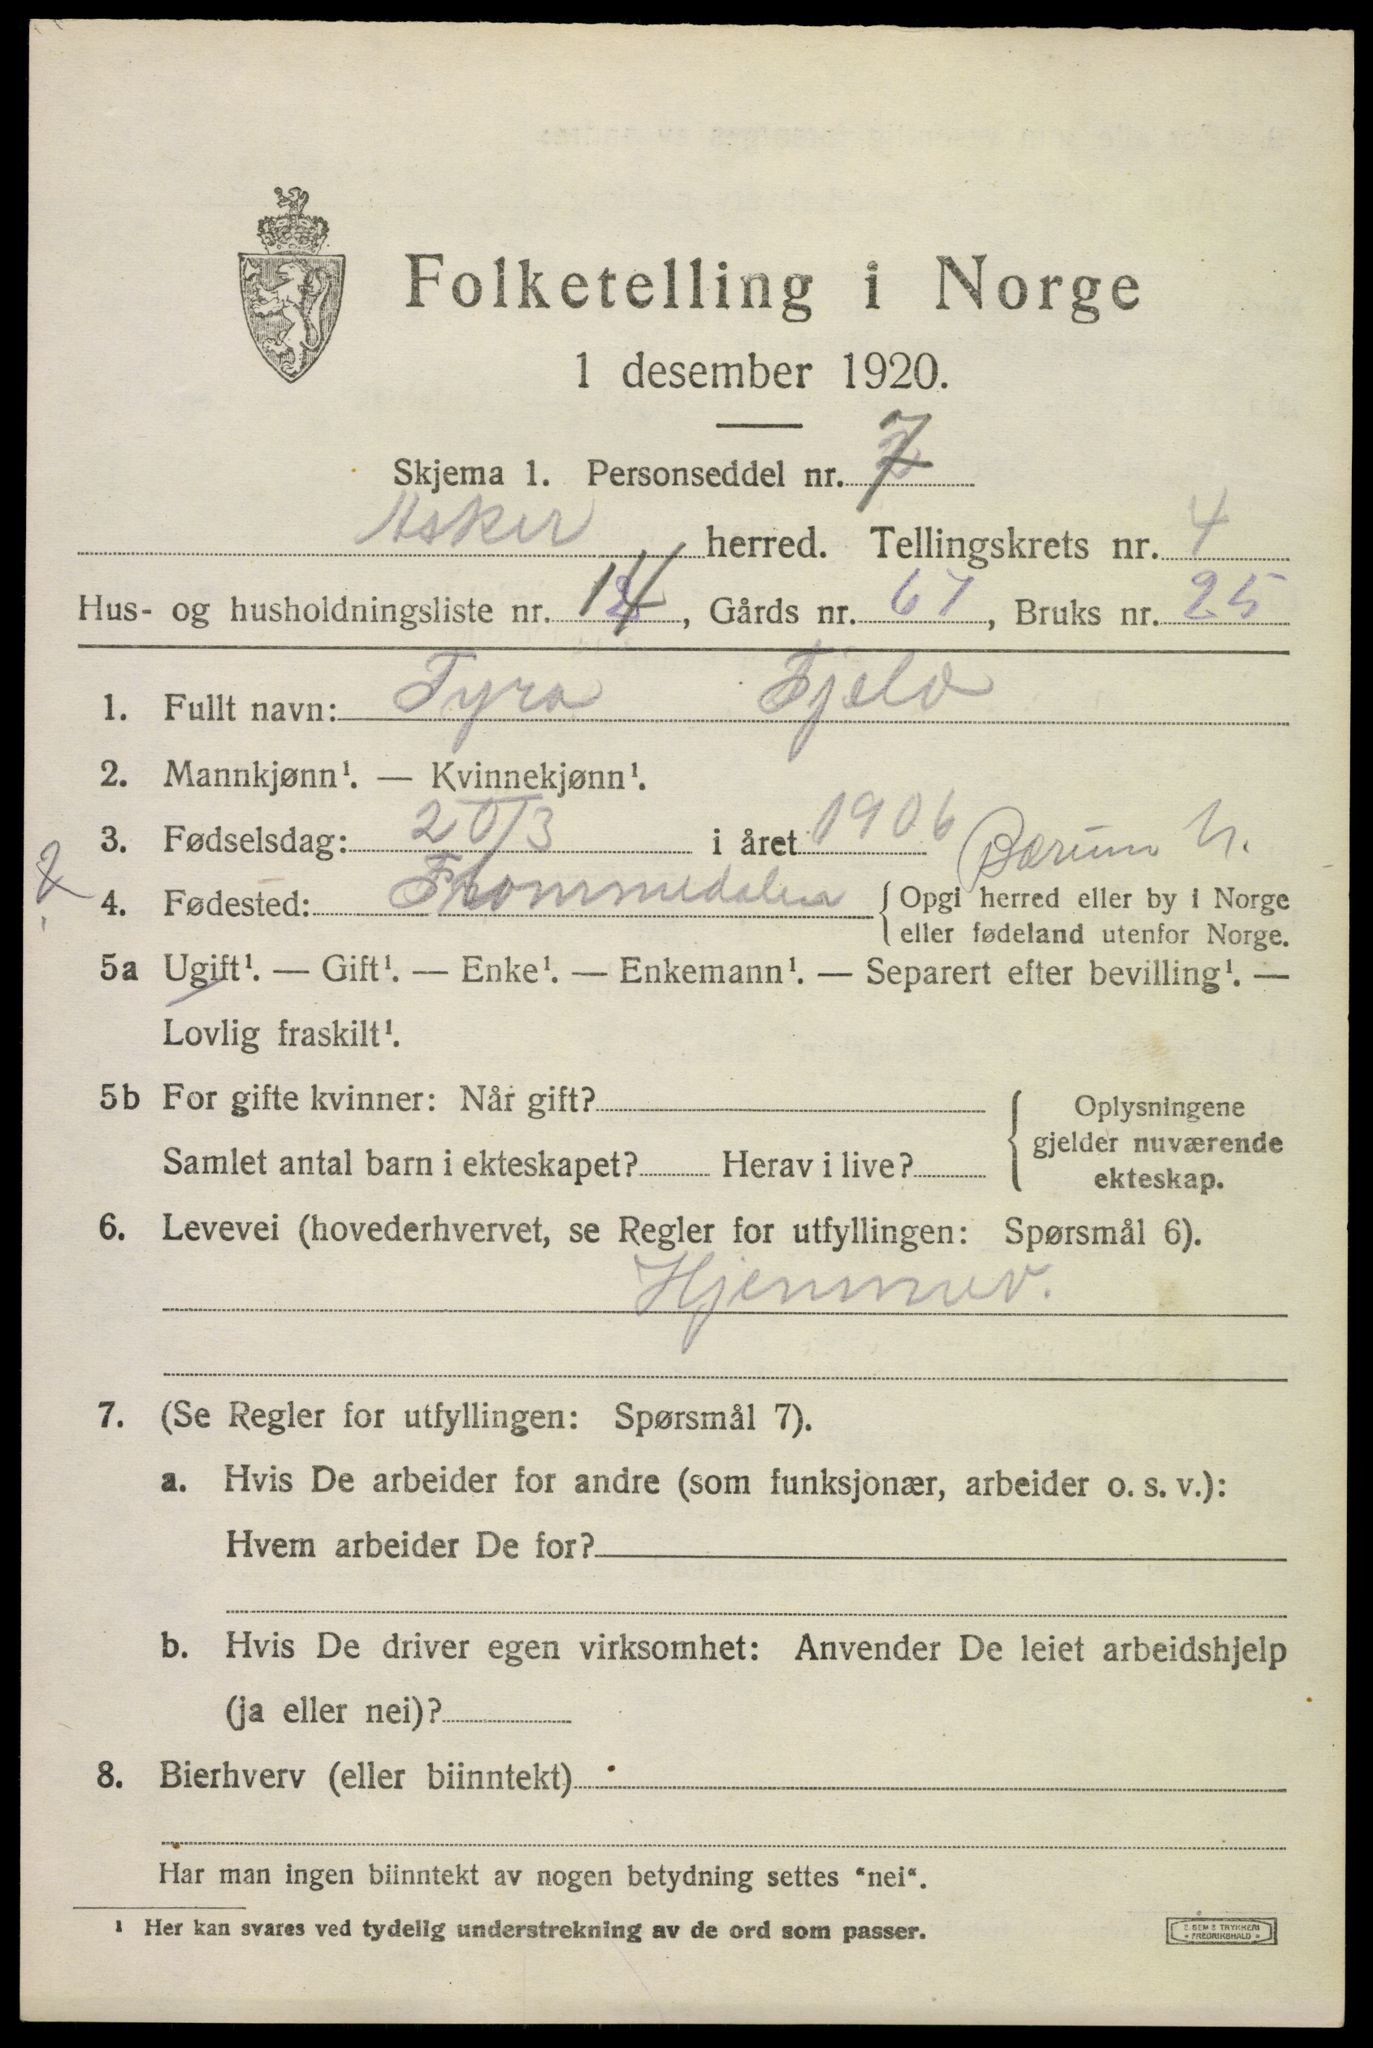 Folketelling i Norge
1 desember 1920.
Skjema 1. Personseddel nr. 7
Asker herred. Tellingskrets nr. 4
Hus- og husholdningsliste nr. 14, Gårds nr. 61, Bruks nr. 25
1. Fullt navn: Tyra Fjeld
2. Mannkjønn¹. — Kvinnekjønn¹.
3. Fødselsdag: 20/3 i året 1906 Bærum
4. Fødested: {Opgi herred eller by i Norge
eller fødeland utenfor Norge.
5a Ugift¹. — Gift¹. — Enke¹. — Enkemann¹. — Separert efter bevilling¹. —
Lovlig fraskilt¹.
5b For gifte kvinner: Når gift? { Oplysningene
gjelder nuværende
Samlet antal barn i ekteskapet? Herav i live? ekteskap.
6. Levevei (hovederhvervet, se Regler for utfyllingen: Spørsmål 6).
Hjemmev.
7. (Se Regler for utfyllingen: Spørsmål 7).
a. Hvis De arbeider for andre (som funksjonær, arbeider o. s. v.):
Hvem arbeider De for?
b. Hvis De driver egen virksomhet: Anvender De leiet arbeidshjelp
(ja eller nei)?
8. Bierhverv (eller biinntekt)
Har man ingen biinntekt av nogen betydning settes "nei".
¹ Her kan svares ved tydelig understrekning av de ord som passer.